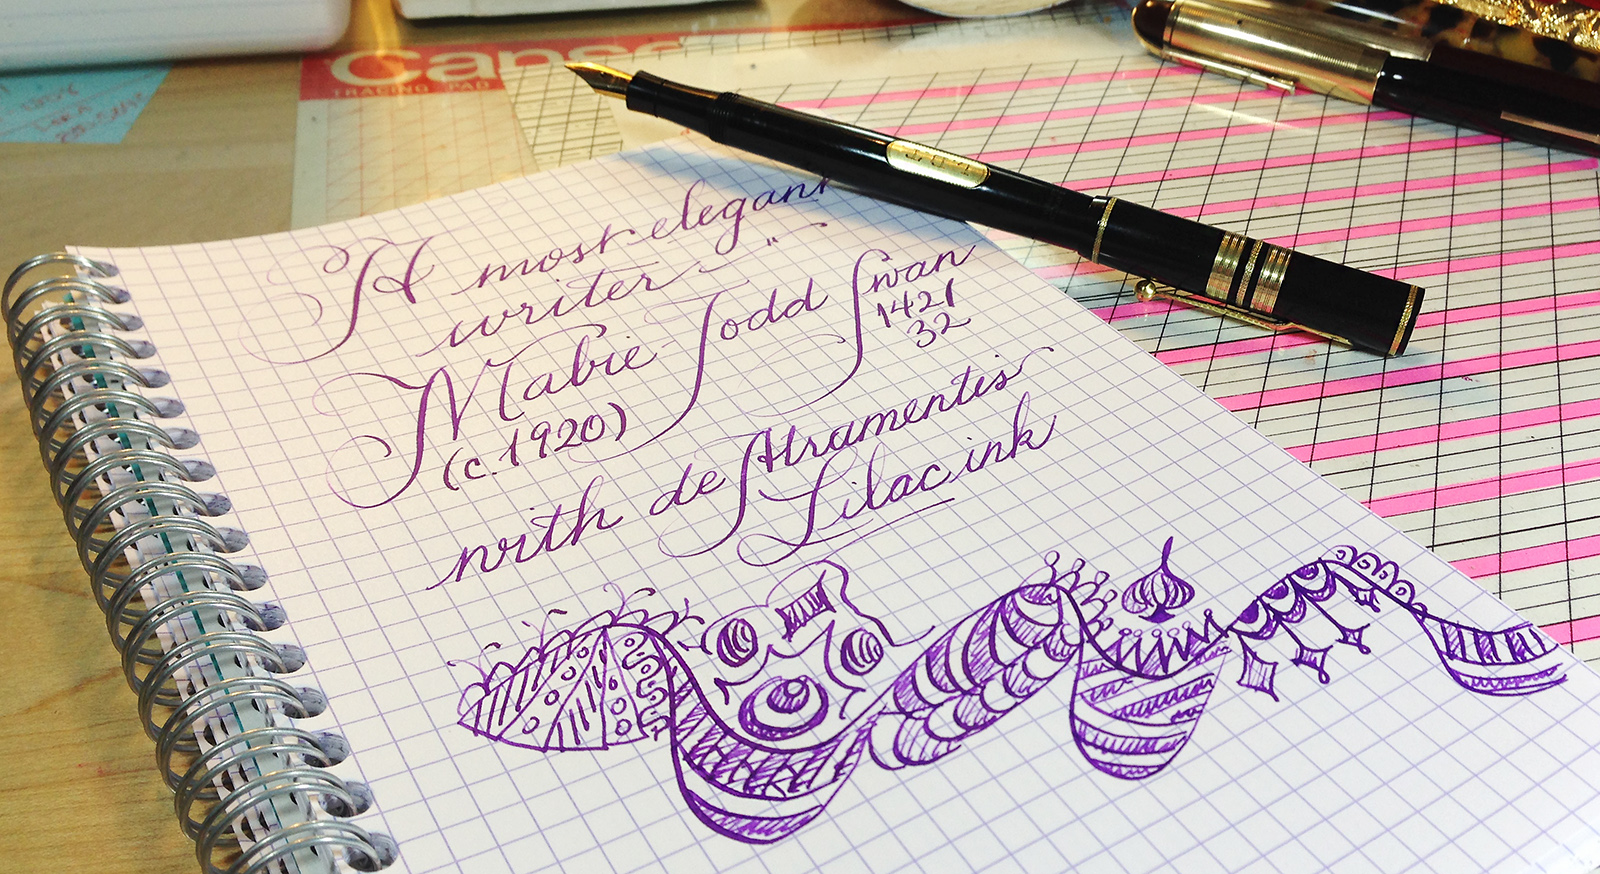 Canso
TRACING PAD
A most elegant
writer "
Mabie Todd Swan
1421
32
(c. 1920)
with de Atramentis
Lilac ink